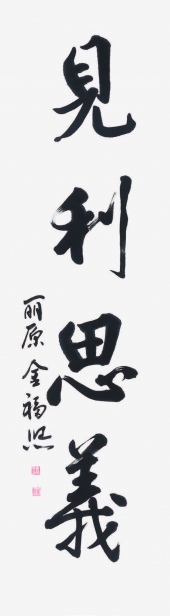 見利思義
丽原 金福熙